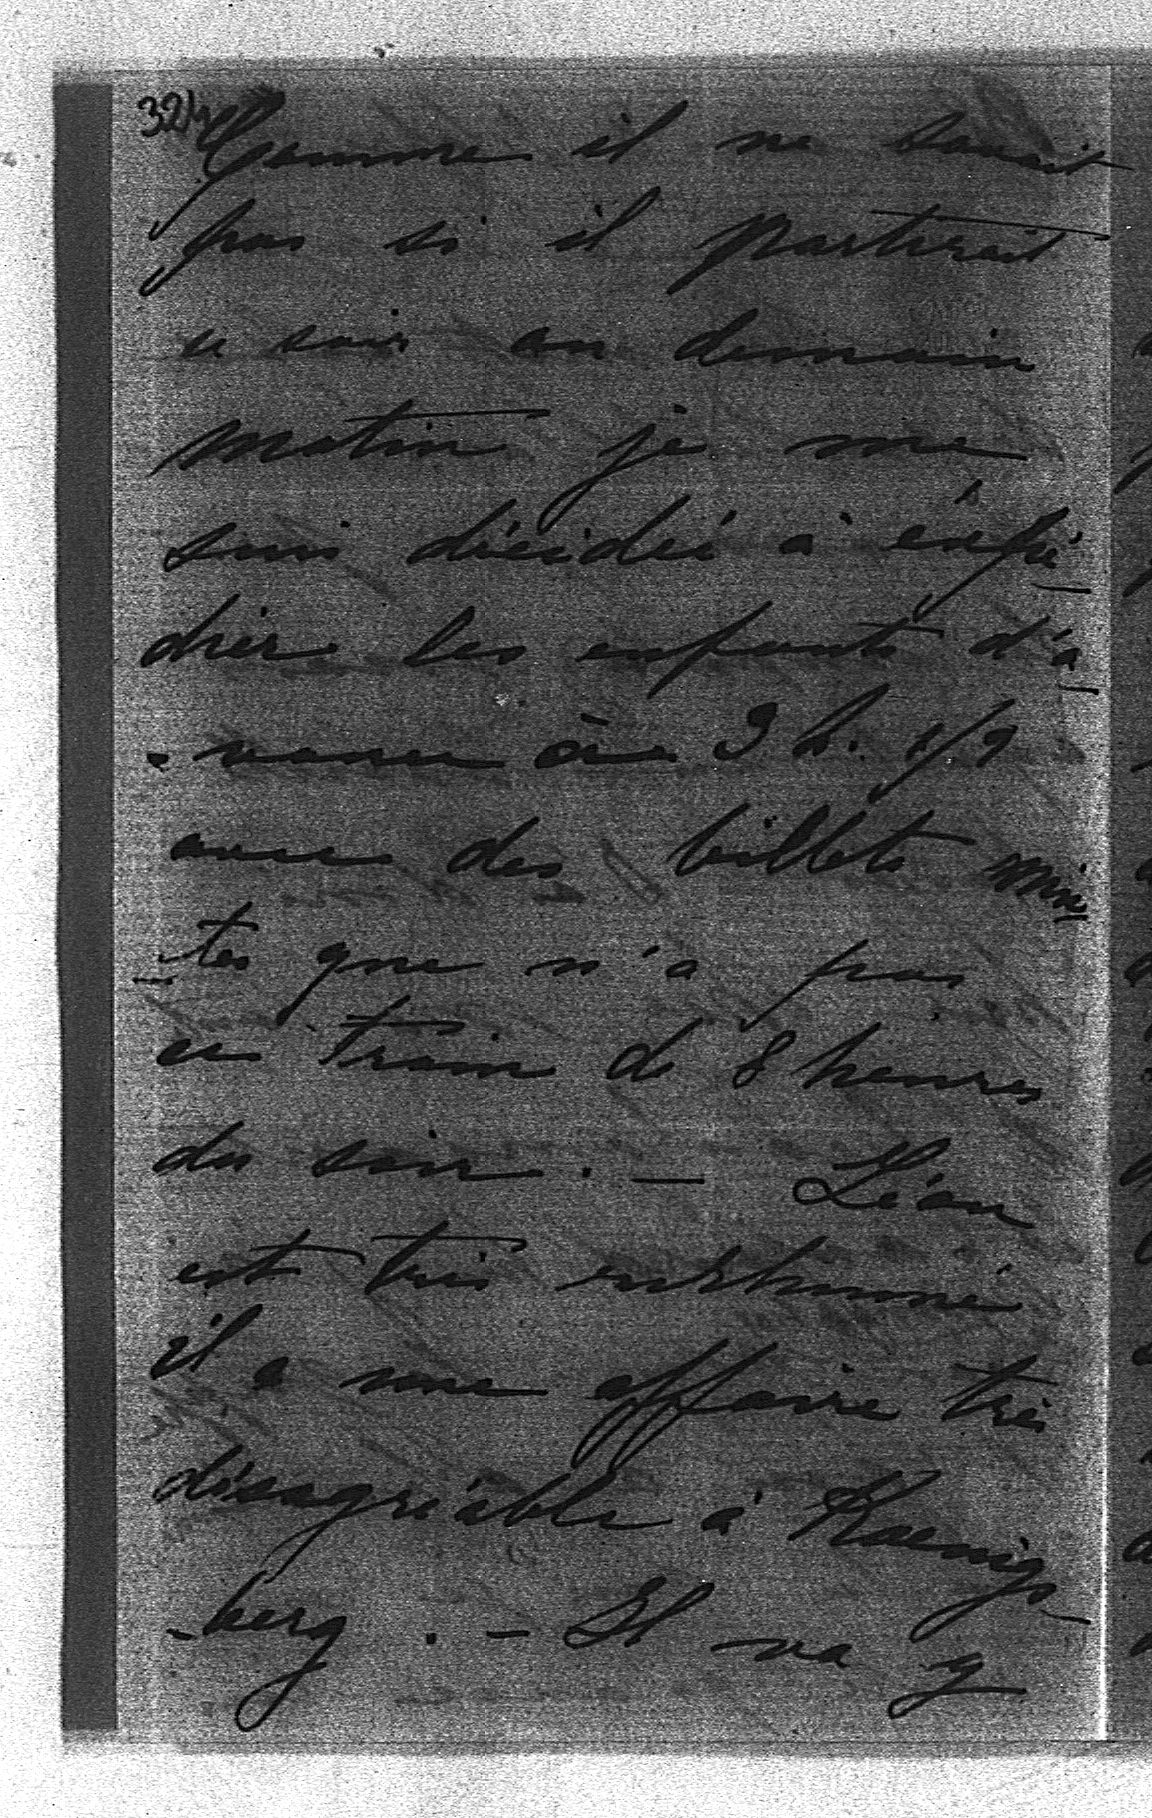 32)
Comme il ne savait
pas si il partirait
ce soir ou demain
matin je me
suis décidée à expé-
dier les enfants d'a-
-vance à 3 h. 1/2
avec des billets mix-
-tes que n'a pas
ce train de 8 heures
du soir. — Léon
est très enrhumé
il a une affaire très
désagréable à Koenigs-
-berg. — Il va y